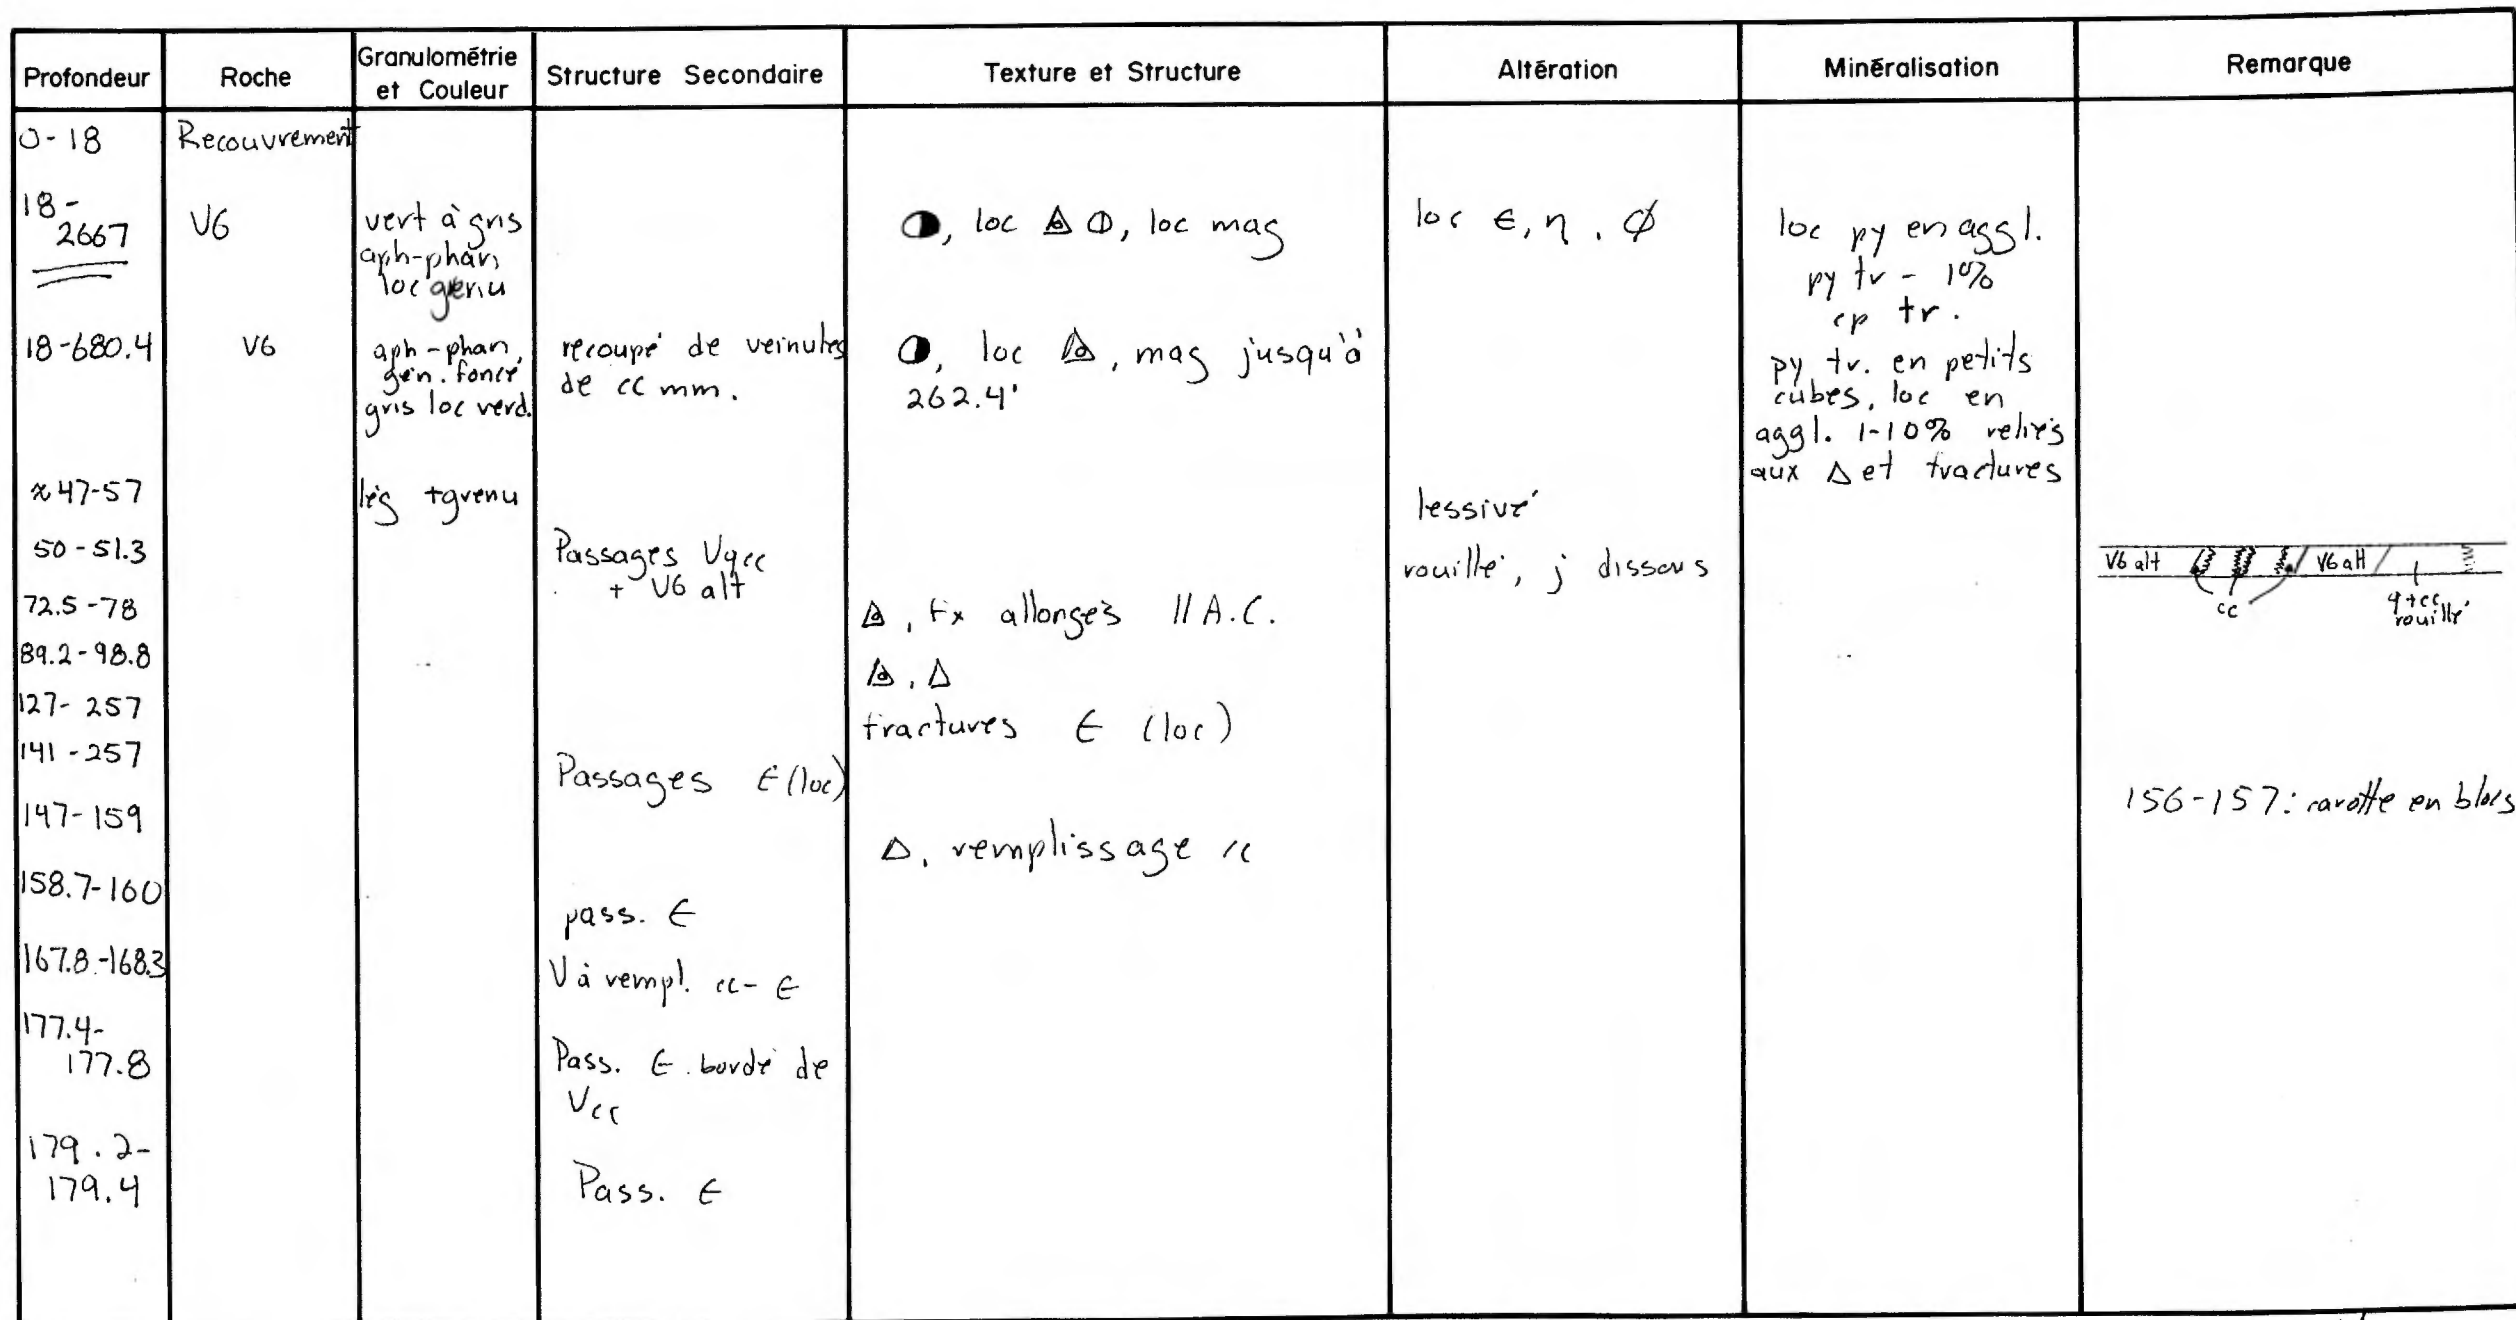 Profondeur
Roche
Granulométrie
et Couleur
Structure Secondaire
Texture et Structure
Altération
Minéralisation
Remarque
0-18
Recouvrement
18-
2667
V6
vert à gris
aph-phan,
loc grenu
◑, loc △ Φ, loc mag
loc ϵ, η, ϕ
loc py en aggl.
py tr - 1%
cp tr.
18-680.4
V6
aph-phan,
gén. foncé
gris loc verd.
recoupé de veinules
de cc mm.
◑, loc △, mag jusqu'à
262.4'
py tr. en petits
cubes, loc en
aggl. 1-10% reliés
aux △ et fractures
≈47-57
lég +grenu
lessivé
50-51.3
Passages Vqcc
+ V6 alt
rouillé, j dissous
V6 alt
V6 alt
cc
q+cc
rouillé
72.5-78
△, fx allongés // A.C.
89.2-98.8
△, △
127-257
fractures ϵ (loc)
141-257
Passages ϵ (loc)
147-159
△, remplissage cc
156-157: carotte en blocs
158.7-160
pass. ϵ
167.8-168.3
V à rempl. cc-ϵ
177.4-
177.8
Pass. ϵ bordé de
Vcc
179.2-
179.4
Pass. ϵ